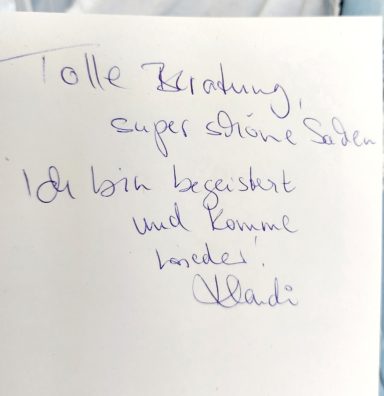 Tolle Beratung,
super schöne Saden
Ich bin begeistert
und komme
wieder!
Klaudi